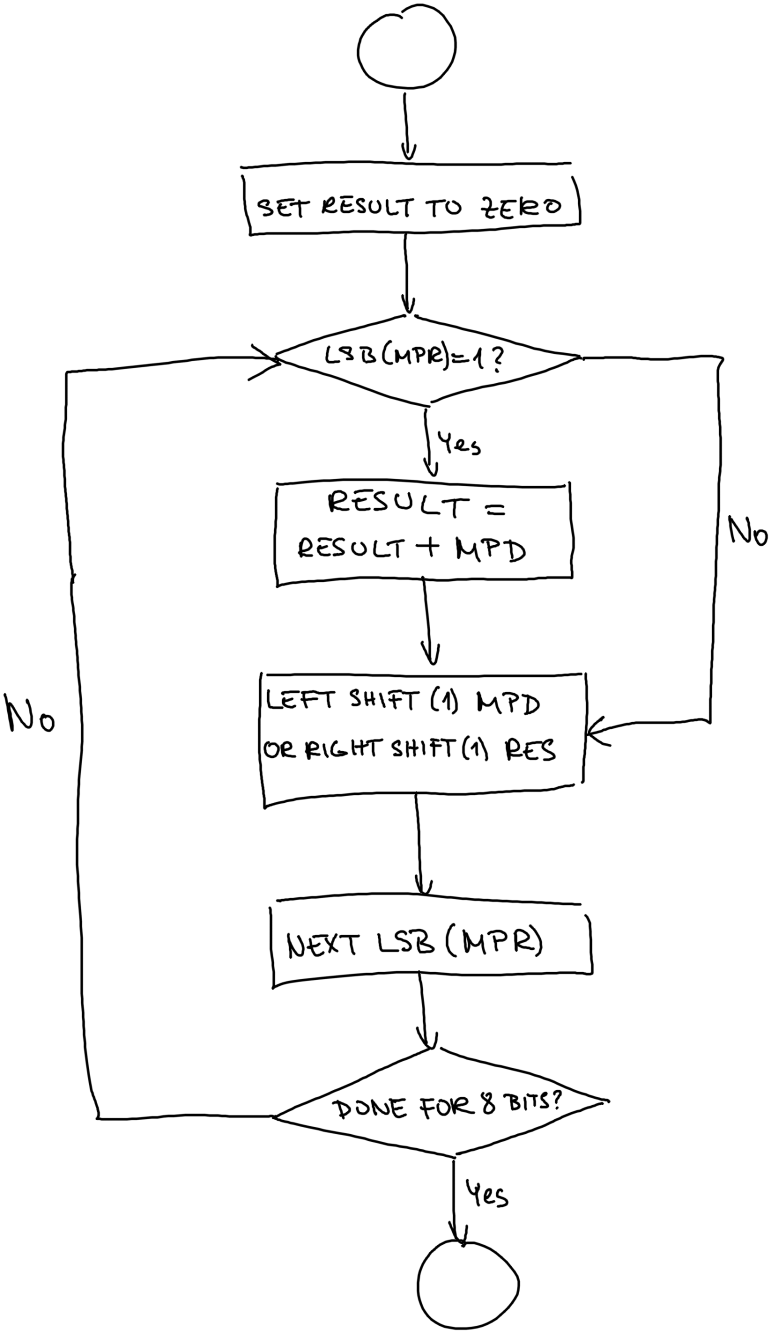 SET RESULT TO ZERO
LSB(MPR)=1?
Yes
RESULT =
RESULT + MPD
No
LEFT SHIFT (1) MPD
OR RIGHT SHIFT (1) RES
No
NEXT LSB (MPR)
DONE FOR 8 BITS?
Yes